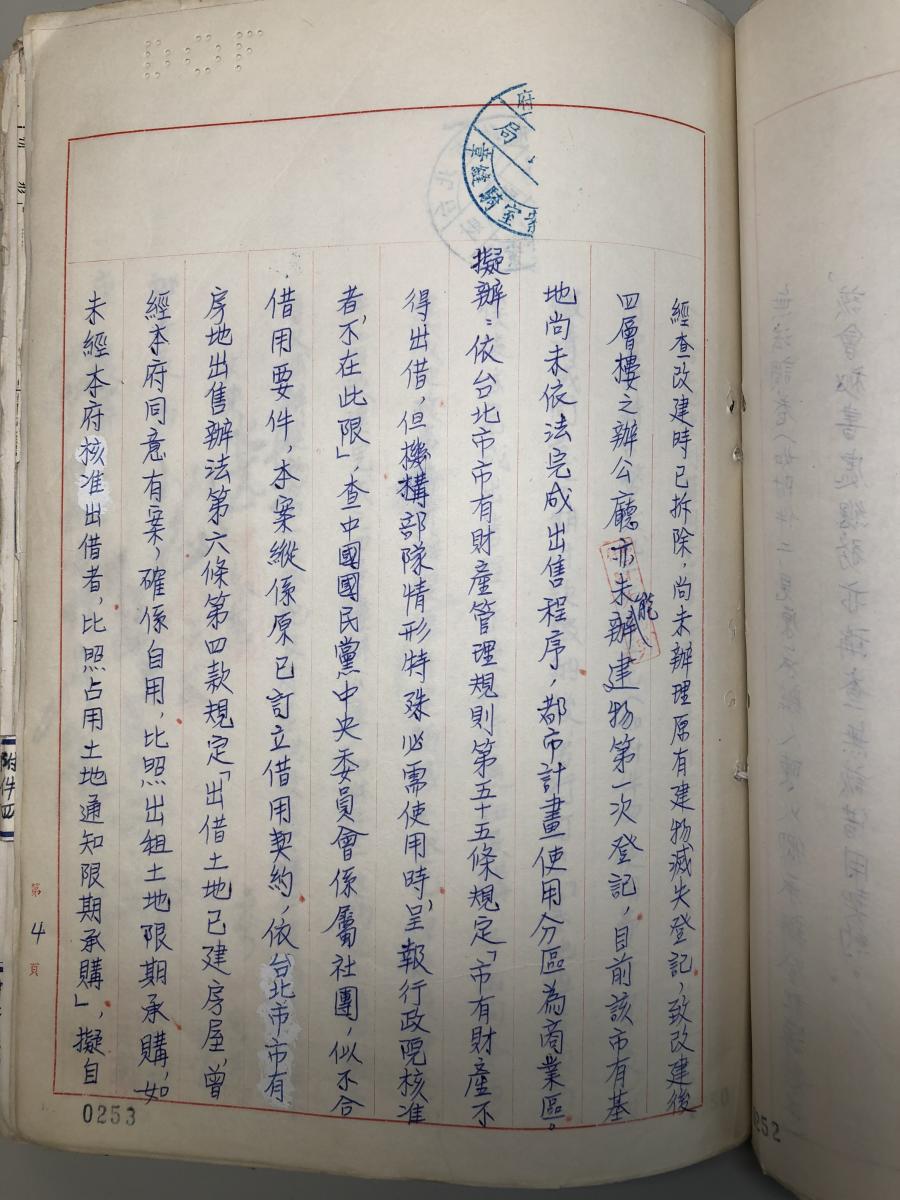 經查改建時已拆除，尚未辦理原有建物滅失登記，致改建後
四層樓之辦公廳亦未能辦建物第一次登記，目前該市有基
地尚未依法完成出售程序，都市計畫使用分區為商業區。
擬辦：依台北市市有財產管理規則第五十五條規定「市有財產不
得出借，但機構部隊情形特殊必需使用時，呈報行政院核准
者，不在此限」，查中國國民黨中央委員會係屬社團，似不合
借用要件，本案縱係原已訂立借用契約，依台北市市有
房地出售辦法第六條第四款規定「出借土地已建房屋，曾
經本府同意有案，確係自用，比照出租土地限期承購，如
未經本府核准出借者，比照占用土地通知限期承購」，擬自
府
局
室騎縫章
第4頁
0253
附件四
252
該會秘書處總務
查無該借用契約。